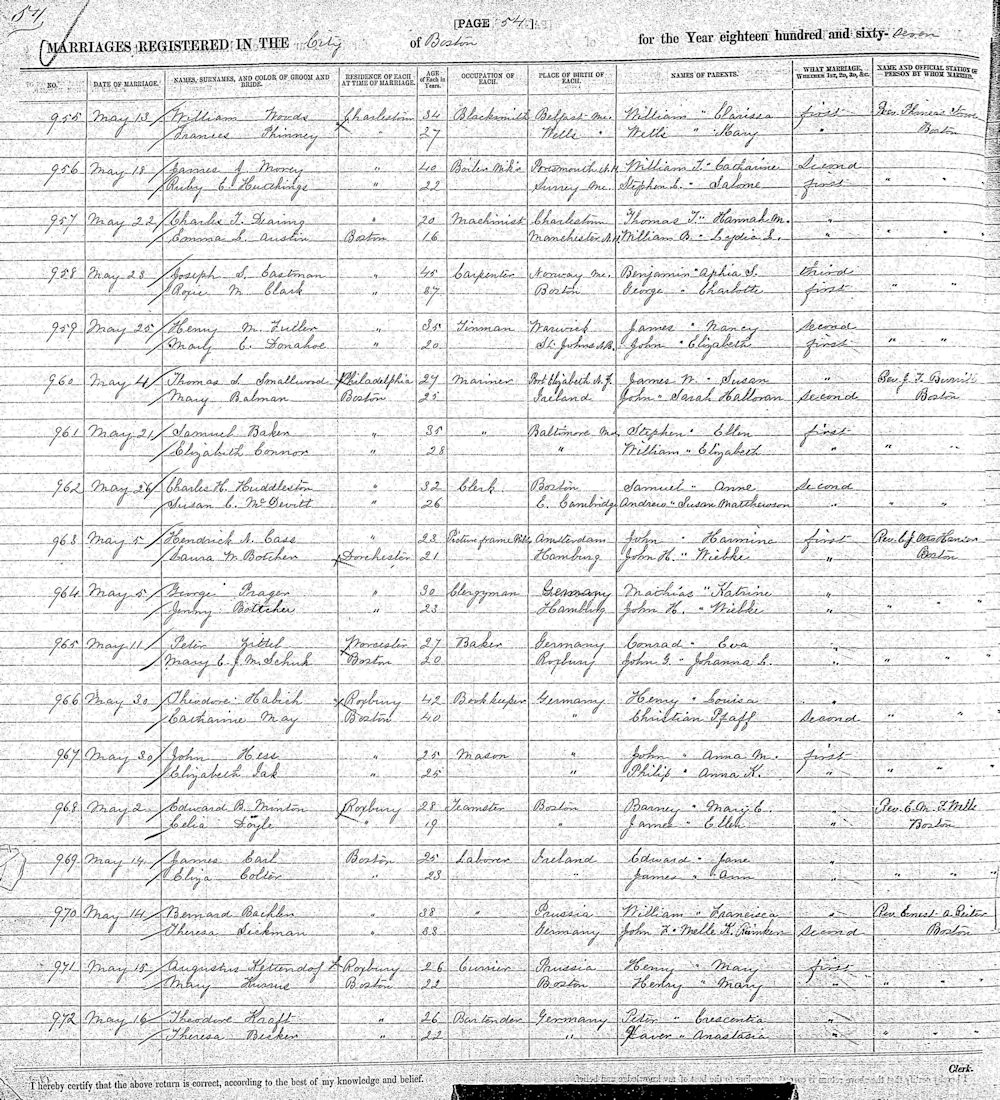 54
[PAGE 54.]
MARRIAGES REGISTERED IN THE City of Boston for the Year eighteen hundred and sixty-seven
NO. DATE OF MARRIAGE. NAMES, SURNAMES, AND COLOR OF GROOM AND BRIDE. RESIDENCE OF EACH AT TIME OF MARRIAGE. AGE of Each in Years. OCCUPATION OF EACH. PLACE OF BIRTH OF EACH. NAMES OF PARENTS. WHAT MARRIAGE, Whether 1st, 2d, 3d, &c. NAME AND OFFICIAL STATION OF PERSON BY WHOM MARRIED.
955 May 13 William Woods Charlestown 34 Blacksmith Belfast Me. William " Clarissa first Rev.
Frances Phinney " 27 Wells " Wells " Mary " Boston
956 May 18 James J. Morey " 40 Boiler Mkr Portsmouth N.H. William T. " Catharine Second
Ruby C. Hutchings " 22 Surrey Me. Stephen S. " Salome first " "
957 May 22 Charles T. Dearing " 20 Machinist Charlestown Thomas T. " Hannah M. "
Emma L. Austin Boston 16 Manchester N.H. William B. " Lydia S. " " "
958 May 23 Joseph S. Eastman " 45 Carpenter Norway Me. Benjamin " Aphia S. third
Rosie M. Clark " 37 Boston George " Charlotte first " "
959 May 25 Henry M. Fuller " 35 Tinman Warwick James " Nancy second
Mary E. Donahoe " 20 St. Johns N.B. John " Elizabeth first " "
960 May 4 Thomas S. Smallwood Philadelphia 27 Mariner Port Elizabeth N.J. James W. " Susan " Rev. J. F.
Mary Balman Boston 25 Ireland John " Sarah Halloran second Boston
961 May 21 Samuel Baker " 35 " Baltimore Md. Stephen " Ellen first
Elizabeth Connor " 28 " William " Elizabeth " " "
962 May 26 Charles H. Huddleston " 32 Clerk Boston Samuel " Anne second
Susan C. McDevitt " 26 E. Cambridge Andrew " Susan Matthewson " " "
963 May 5 Hendrick N. Cass " 23 Picture frame Amsterdam John " Harmina first Rev.
Laura W. Botcher Dorchester 21 Hamburg John H. " Wiebke " Boston
964 May 5 George Prager " 30 Clergyman Germany Mathias " Katrine "
Jenny Bottcher " 23 Hamburg John H. " Wiebke " " "
965 May 11 Peter Worcester 27 Baker Germany Conrad " Eva "
Mary C. J. M. Schuh Boston 20 Roxbury John G. " Johanna C. " " "
966 May 30 Theodore Habich Roxbury 42 Bookkeeper Germany Henry " Louisa "
Catharine May Boston 40 " Christian Pfaff second " "
967 May 30 John Hess " 25 Mason " John " Anna M. first
Elizabeth " 25 " Philip " Anna K. " " "
968 May 2 Edward B. Minton Roxbury 28 Teamster Boston Barney " Mary C. " Rev. E. M. P. Wells
Celia Doyle " 19 " James " Ellen " Boston
969 May 14 James Earl Boston 25 Laborer Ireland Edward " Jane "
Eliza Colter " 23 " James " Ann "
970 May 14 Bernard Bachlen " 38 " Prussia William " Francisca " Rev. Ernest A. Reiter
Theresa Sickman " 33 Germany John F. " second Boston
971 May 15 Augustus Kettendof Roxbury 26 Currier Prussia Henry " Mary first
Mary Boston 22 Boston Henry " Mary " " "
972 May 16 Theodore Kraft " 26 Bartender Germany Peter " Crescentia "
Theresa Becker " 22 " Xaver " Anastasia " " "
I hereby certify that the above return is correct, according to the best of my knowledge and belief. Clerk.